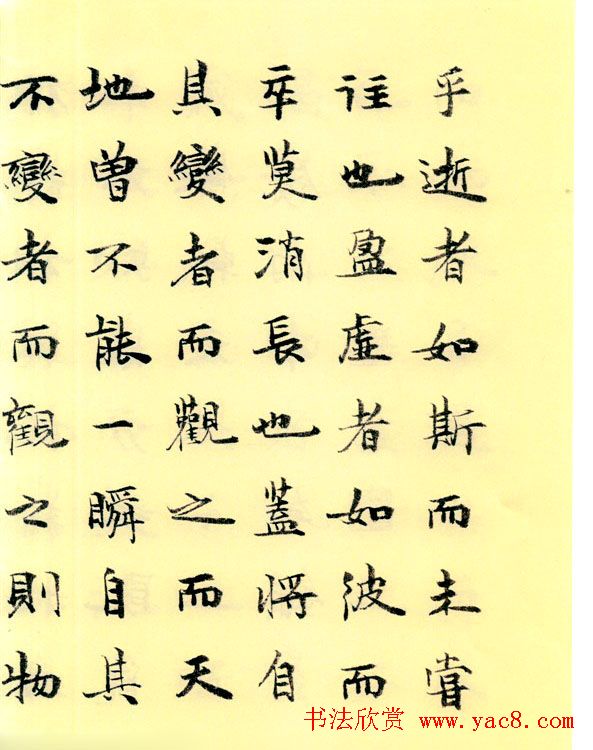 乎逝者如斯而未嘗
往也盈虛者如彼而
卒莫消長也蓋將自
其變者而觀之而天
地曾不能一瞬自其
不變者而觀之則物
书法欣赏 www.yac8.com